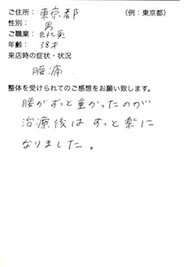 ご住所: 東京都 (例:東京都)
性別: 男
ご職業: 会社員
年齢: 38才
来店時の症状・状況
腰痛
整体を受けられてのご感想をお願い致します。
腰がずっと重かったのが
治療後はずっと楽に
なりました。